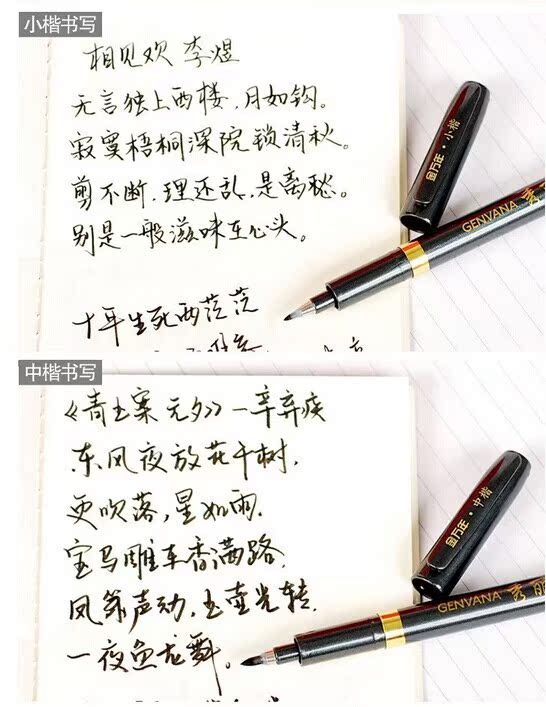 小楷书写
相见欢 李煜
无言独上西楼,月如钩。
寂寞梧桐深院锁清秋。
剪不断,理还乱,是离愁。
别是一般滋味在心头。
十年生死两茫茫
金万年·小楷
GENVANA 秀
中楷书写
《青玉案 元夕》—辛弃疾
东风夜放花千树,
更吹落,星如雨,
宝马雕车香满路,
凤箫声动,玉壶光转,
一夜鱼龙舞。
金万年·中楷
GENVANA 秀丽